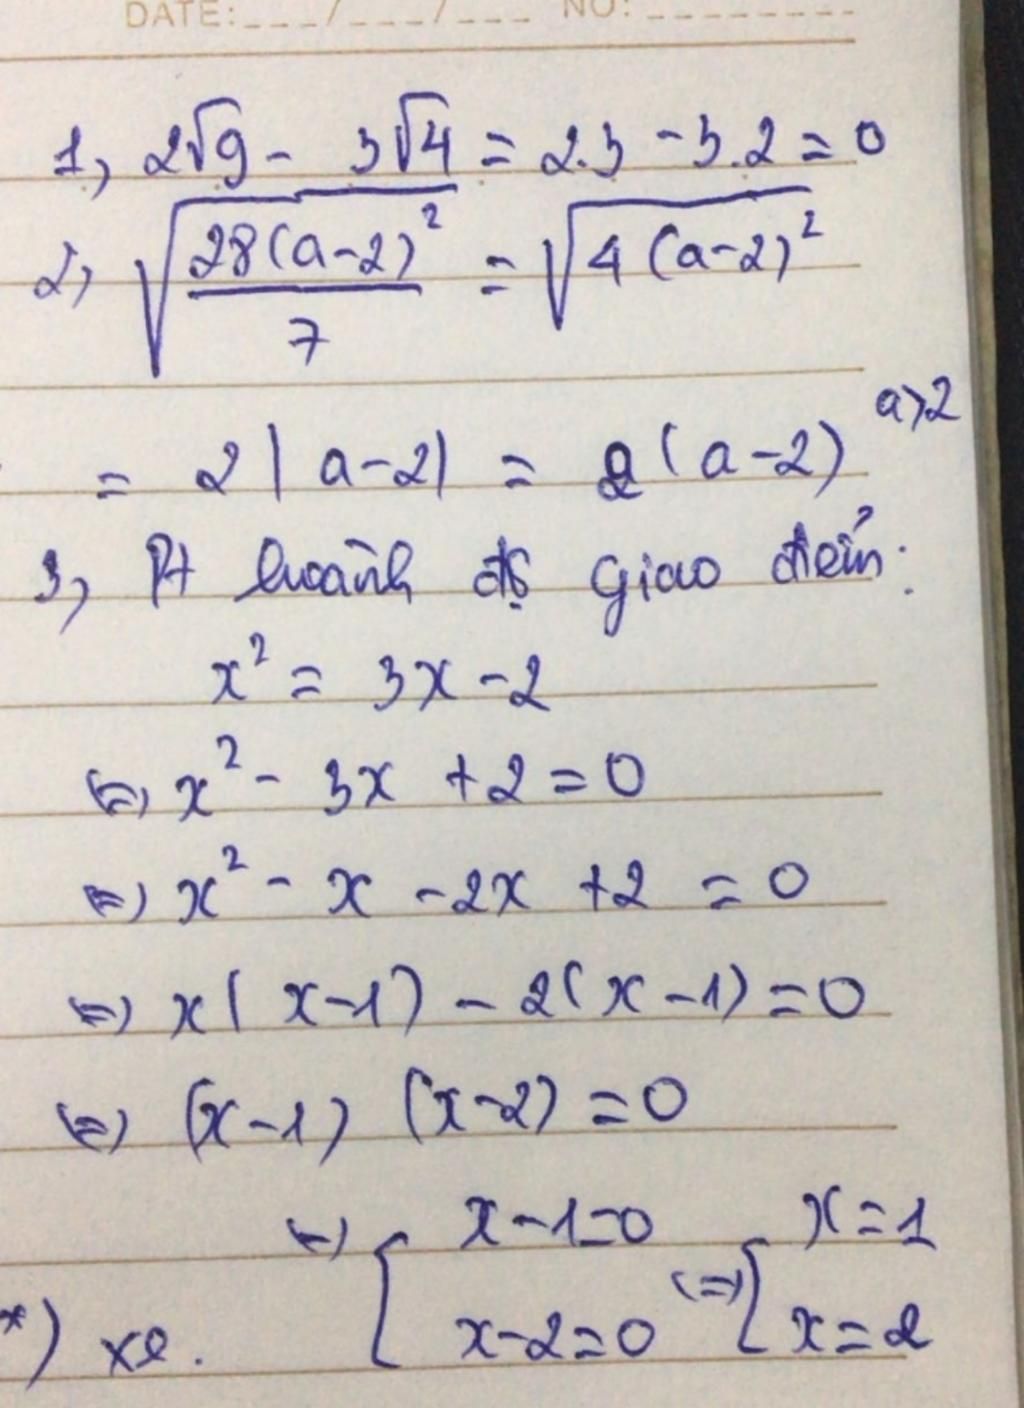 DATE:___/___/___ NO:________
1, 2√9 - 3√4 = 2.3 - 3.2 = 0
2, √(28(a-2)²/7) = √(4(a-2)²)
= 2|a-2| = 2(a-2) a>2
3, Pt hoành độ giao điểm:
x² = 3x - 2
<=> x² - 3x + 2 = 0
<=> x² - x - 2x + 2 = 0
<=> x(x-1) - 2(x-1) = 0
<=> (x-1) (x-2) = 0
<=> [ x-1=0 <=> [ x=1
x-2=0 x=2
*)